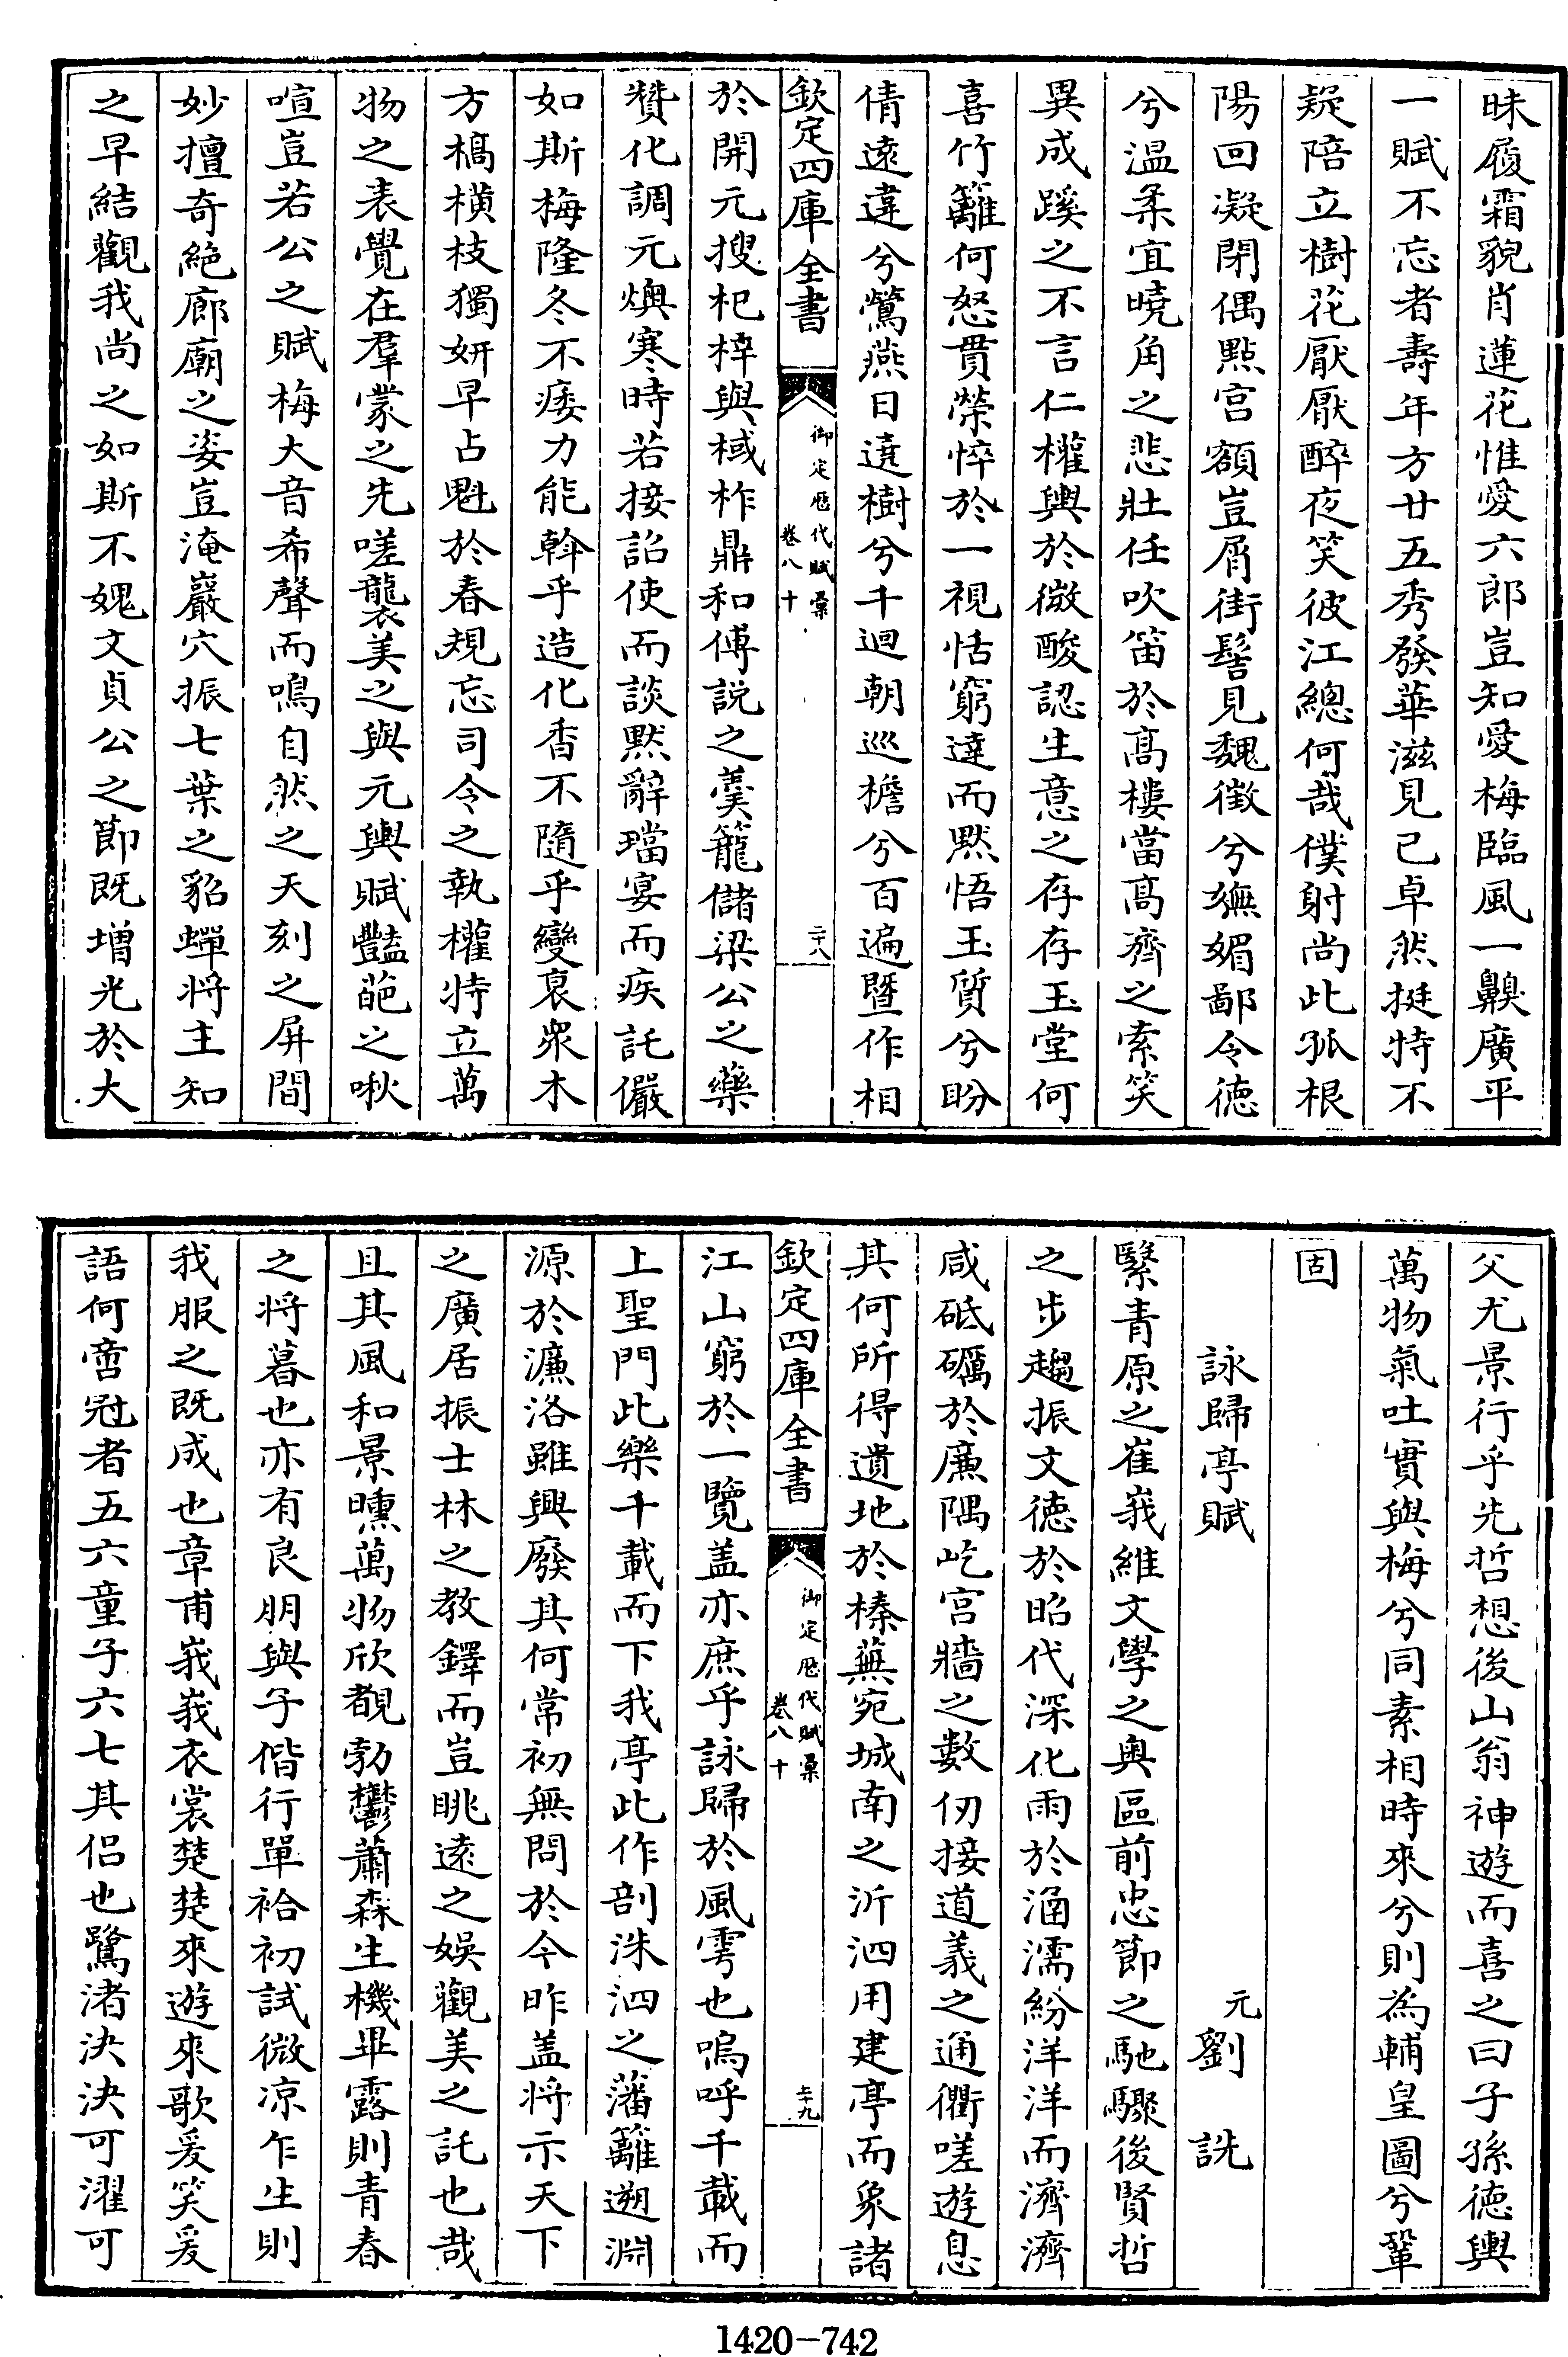 昧履霜貌肖蓮花惟愛六郎豈知愛梅臨風一齅廣平
一賦不忘者壽年方廿五秀發華滋見已卓然挺特不
疑陪立樹花厭厭醉夜笑彼江總何哉僕射尚此孤根
陽回凝閉偶點宮額豈屑街髻見魏徵兮嫵媚鄙令徳
兮温柔宜曉角之悲壯任吹笛於髙樓當髙齊之索笑
異成蹊之不言仁權輿於微酸認生意之存存玉堂何
喜竹籬何怒貫榮悴於一視恬窮達而黙悟玉質兮盼
倩逺違兮鶯燕日遶樹兮千迴朝巡檐兮百遍暨作相
欽定四庫全書
御定歴代賦彚
卷八十
二十八
於開元搜杞梓與棫柞鼎和傅説之羮籠儲梁公之藥
贊化調元燠寒時若接詔使而談黙辭璫宴而疾託儼
如斯梅隆冬不痿力能斡乎造化香不隨乎變裒衆木
方槁橫枝獨妍早占魁於春規忘司令之執權特立萬
物之表覺在羣蒙之先嗟襲美之與元輿賦豔葩之啾
喧豈若公之賦梅大音希聲而鳴自然之天刻之屏間
妙擅奇絶廊廟之姿豈淹巖穴振七葉之貂蟬将主知
之早結觀我尚之如斯不媿文貞公之節既增光於大
父尤景行乎先哲想後山翁神遊而喜之曰子孫徳輿
萬物氣吐實與梅兮同素相時來兮則為輔皇圖兮鞏
固
詠歸亭賦
元劉詵
繄青原之崔峩維文學之奥區前忠節之馳驟後賢哲
之步趨振文徳於昭代深化雨於涵濡紛洋洋而濟濟
咸砥礪於廉隅屹宮牆之數仞接道義之通衢嗟遊息
其何所得遺地於榛蕪宛城南之沂泗用建亭而象諸
欽定四庫全書
御定歴代賦彚
卷八十
二十九
江山窮於一覽盖亦庶乎詠歸於風雩也嗚呼千載而
上聖門此樂千載而下我亭此作剖洙泗之藩籬遡淵
源於濂洛雖興廢其何常初無問於今昨盖將示天下
之廣居振士林之教鐸而豈眺逺之娛觀美之託也哉
且其風和景曛萬物欣覩勃鬱蕭森生機畢露則青春
之将暮也亦有良朋與子偕行單袷初試微凉乍生則
我服之既成也章甫峩峩衣裳楚楚來遊來歌爰笑爰
語何啻冠者五六童子六七其侣也鷺渚決決可濯可
1420-742